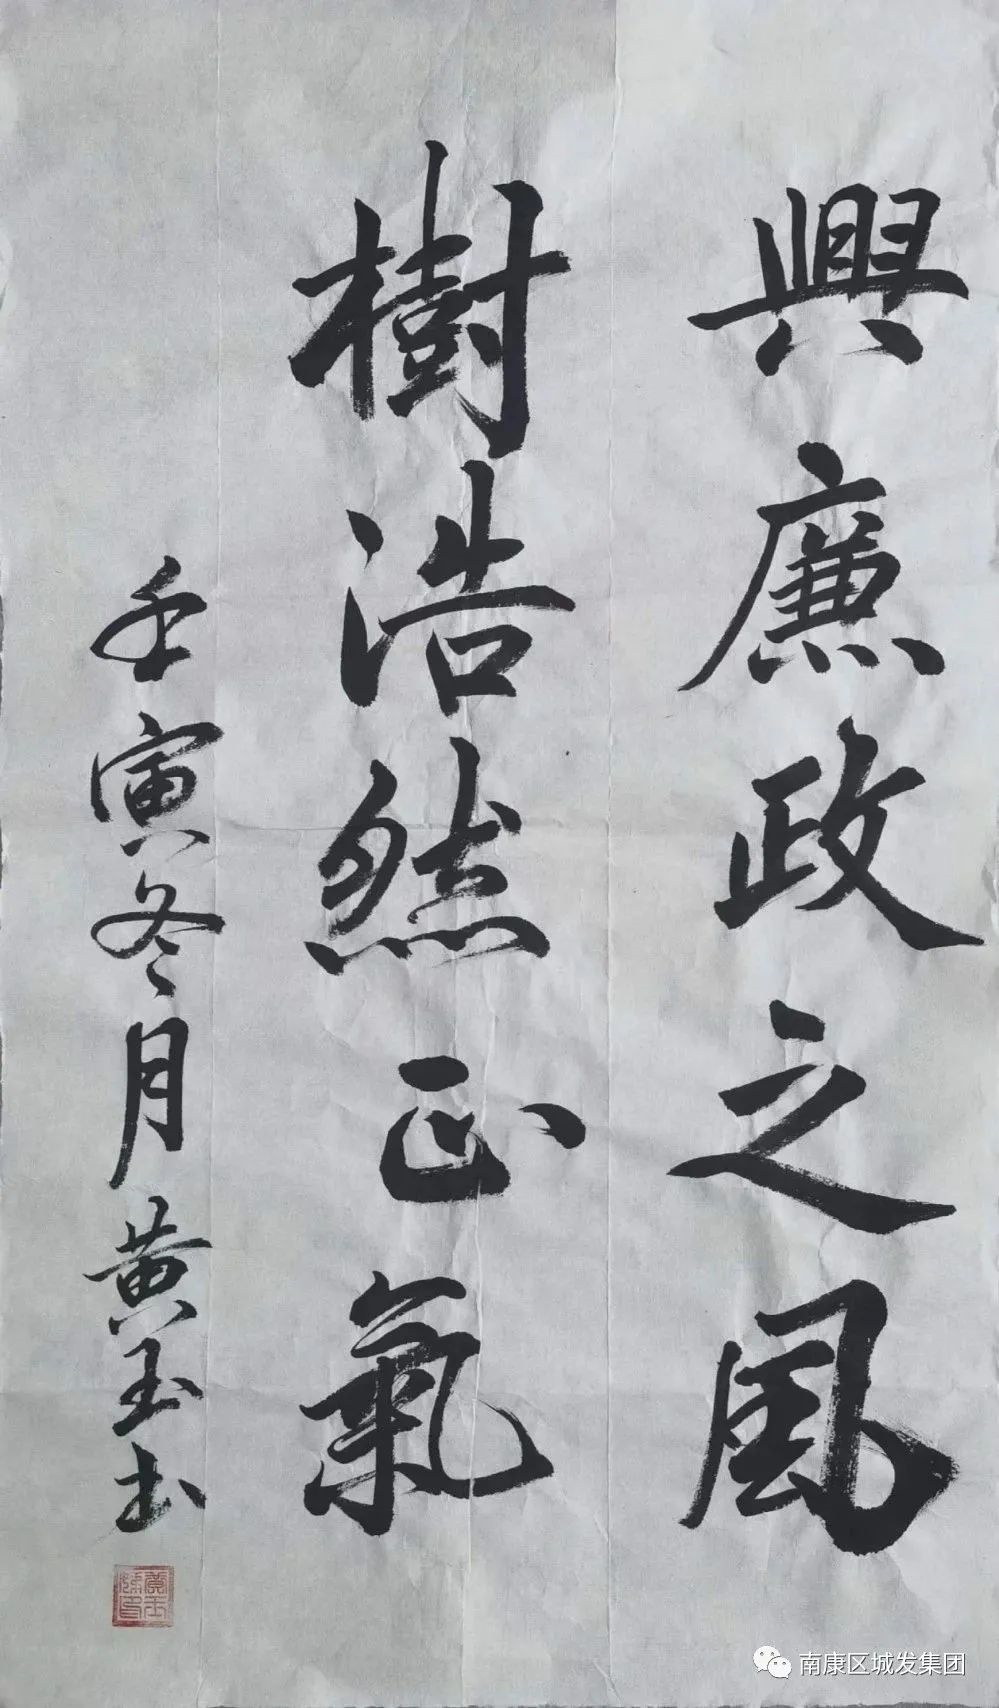 興廉政之風
樹浩然正氣
壬寅冬月黄玉书
南康区城发集团